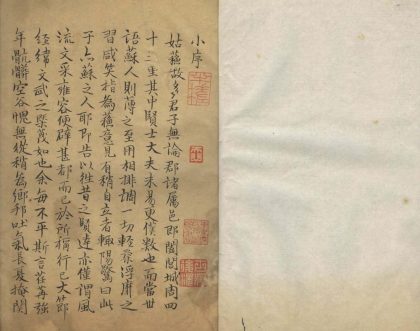 小序
姑蘇故多君子無論郡諸屬邑即闔閭城周四
十三里其中賢士大夫未易更僕數也而當世
語蘇人則薄之至用相排調一切輕柔浮靡之
習咸笑指為蘇意見有稍自立者輒陽驚曰此
子亦蘇之人耶即告以往昔之賢達亦僅謂風
流文采雍容便辟甚都而已於所稱行己大節
經緯文武之業蔑如也余每不平斯言荏苒強
年骯髒空谷愧無從稍為鄉邦吐氣長夏掩關